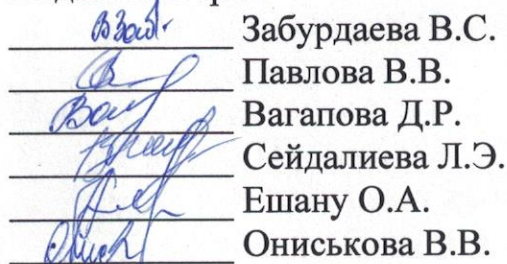 Забурдаева В.С.
Павлова В.В.
Вагапова Д.Р.
Сейдалиева Л.Э.
Ешану О.А.
Ониськова В.В.